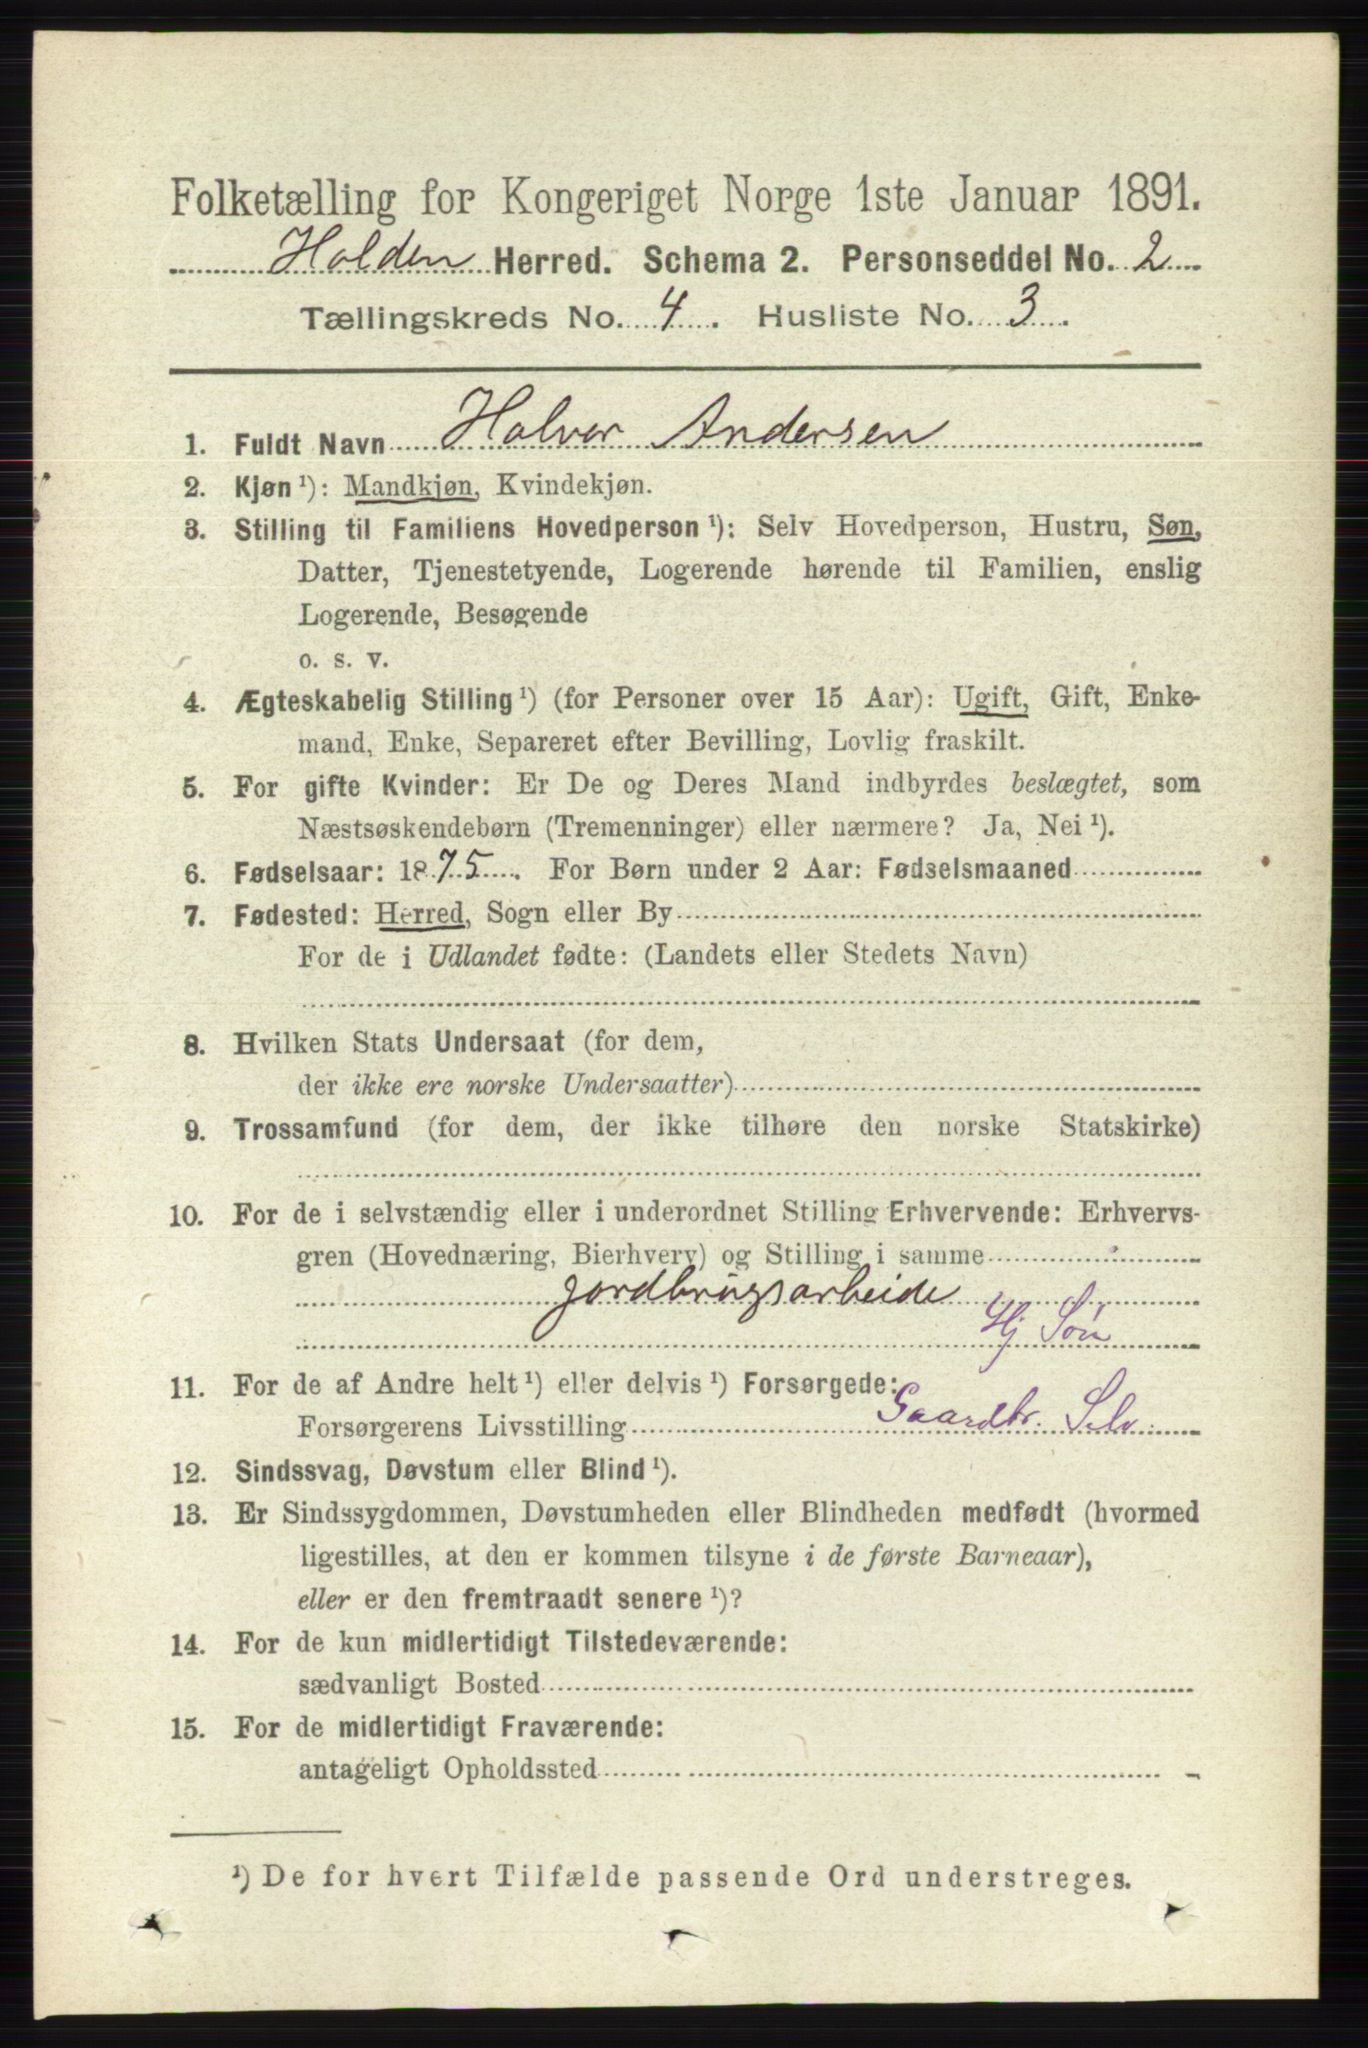 Folketælling for Kongeriget Norge 1ste Januar 1891.
Holden Herred. Schema 2. Personseddel No. 2
Tællingskreds No. 4. Husliste No. 3.
1. Fuldt Navn Halvor Andersen
2. Kjøn ¹): Mandkjøn, Kvindekjøn.
3. Stilling til Familiens Hovedperson ¹): Selv Hovedperson, Hustru, Søn,
Datter, Tjenestetyende, Logerende hørende til Familien, enslig
Logerende, Besøgende
o. s. v.
4. Ægteskabelig Stilling ¹) (for Personer over 15 Aar): Ugift, Gift, Enke-
mand, Enke, Separeret efter Bevilling, Lovlig fraskilt.
5. For gifte Kvinder: Er De og Deres Mand indbyrdes beslægtet, som
Næstsøskendebørn (Tremenninger) eller nærmere? Ja, Nei ¹).
6. Fødselsaar: 1875. For Børn under 2 Aar: Fødselsmaaned
7. Fødested: Herred, Sogn eller By
For de i Udlandet fødte: (Landets eller Stedets Navn)
8. Hvilken Stats Undersaat (for dem,
der ikke ere norske Undersaatter)
9. Trossamfund (for dem, der ikke tilhøre den norske Statskirke)
10. For de i selvstændig eller i underordnet Stilling Erhvervende: Erhvervs-
gren (Hovednæring, Bierhverv) og Stilling i samme
jordbrugsarbeide
Hj Søn
11. For de af Andre helt ¹) eller delvis ¹) Forsørgede:
Forsørgerens Livsstilling Gaardbr. Selv.
12. Sindssvag, Døvstum eller Blind ¹).
13. Er Sindssygdommen, Døvstumheden eller Blindheden medfødt (hvormed
ligestilles, at den er kommen tilsyne i de første Barneaar),
eller er den fremtraadt senere ¹)?
14. For de kun midlertidigt Tilstedeværende:
sædvanligt Bosted
15. For de midlertidigt Fraværende:
antageligt Opholdssted
¹) De for hvert Tilfælde passende Ord understreges.